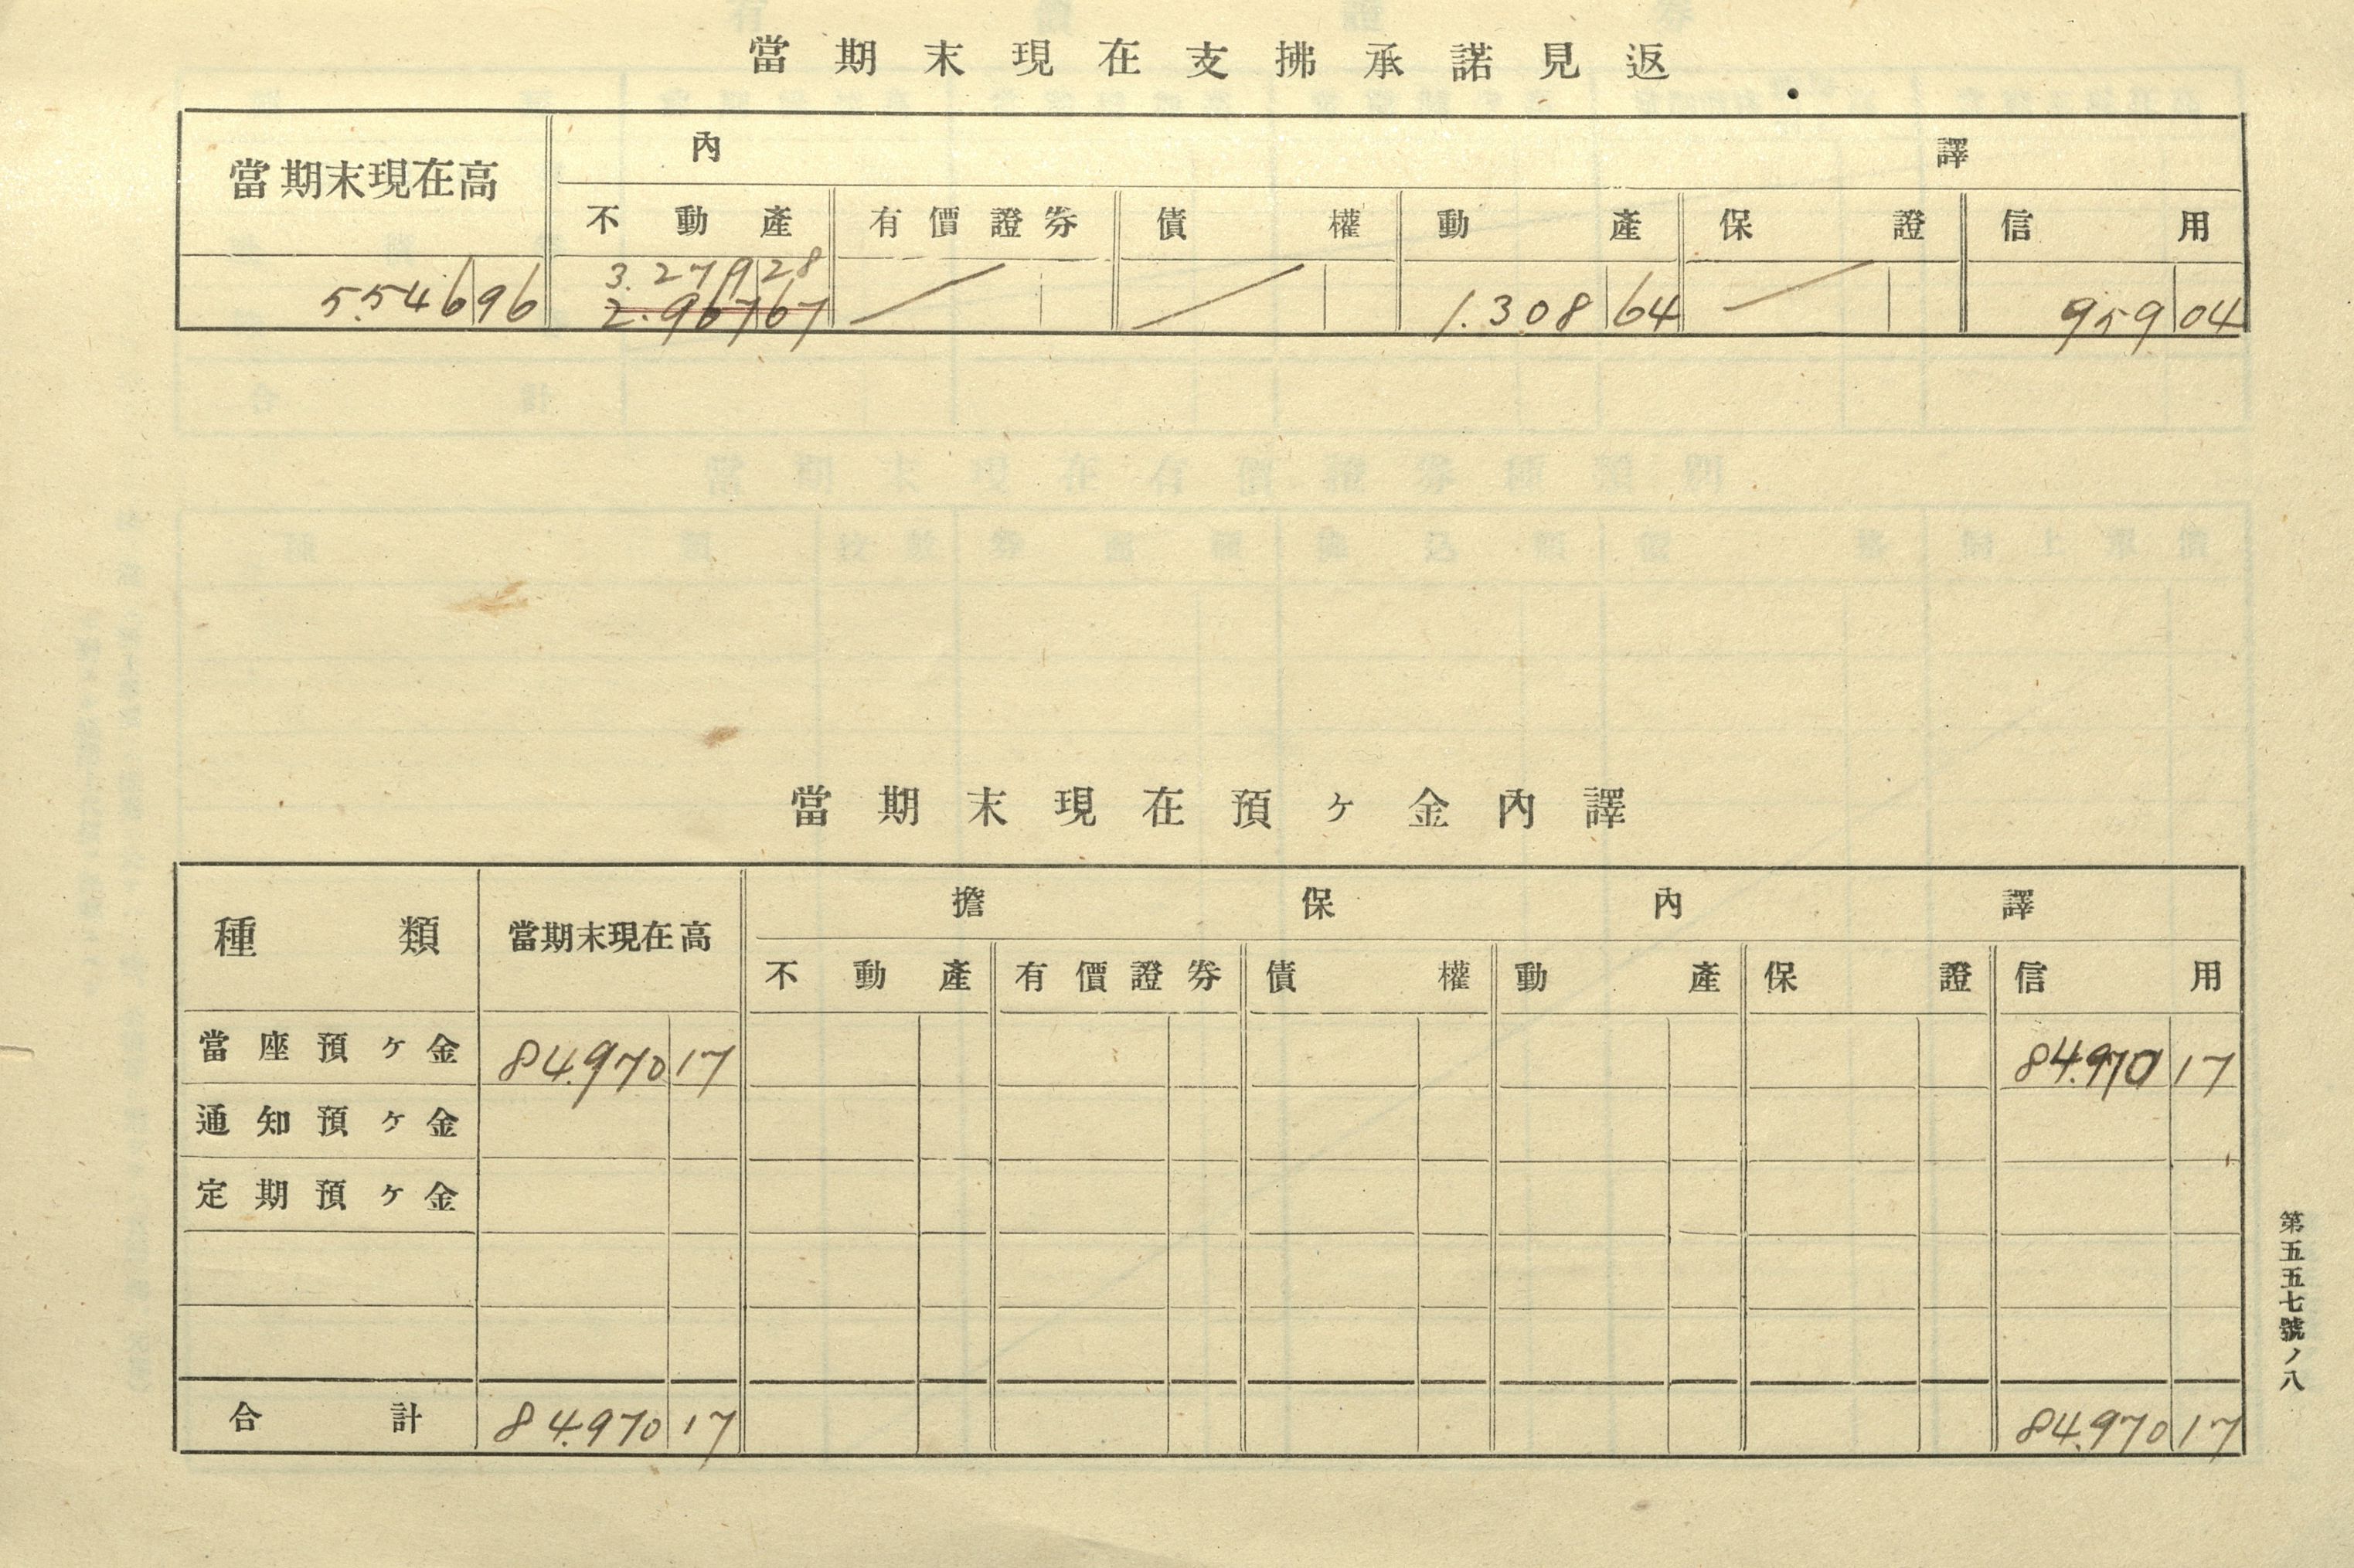 當期末現在支拂承諾見返
當期末現在高 內譯
不動產 有價證券 債權 動產 保證 信用
3.279 28
5.546 96 2.967 67 1.308 64 959 04
當期末現在預ヶ金內譯
種類 當期末現在高 擔保內譯
不動產 有價證券 債權 動產 保證 信用
當座預ヶ金 84.970 17 84.970 17
通知預ヶ金
定期預ヶ金
合計 84.970 17 84.970 17
第五五七號ノ八